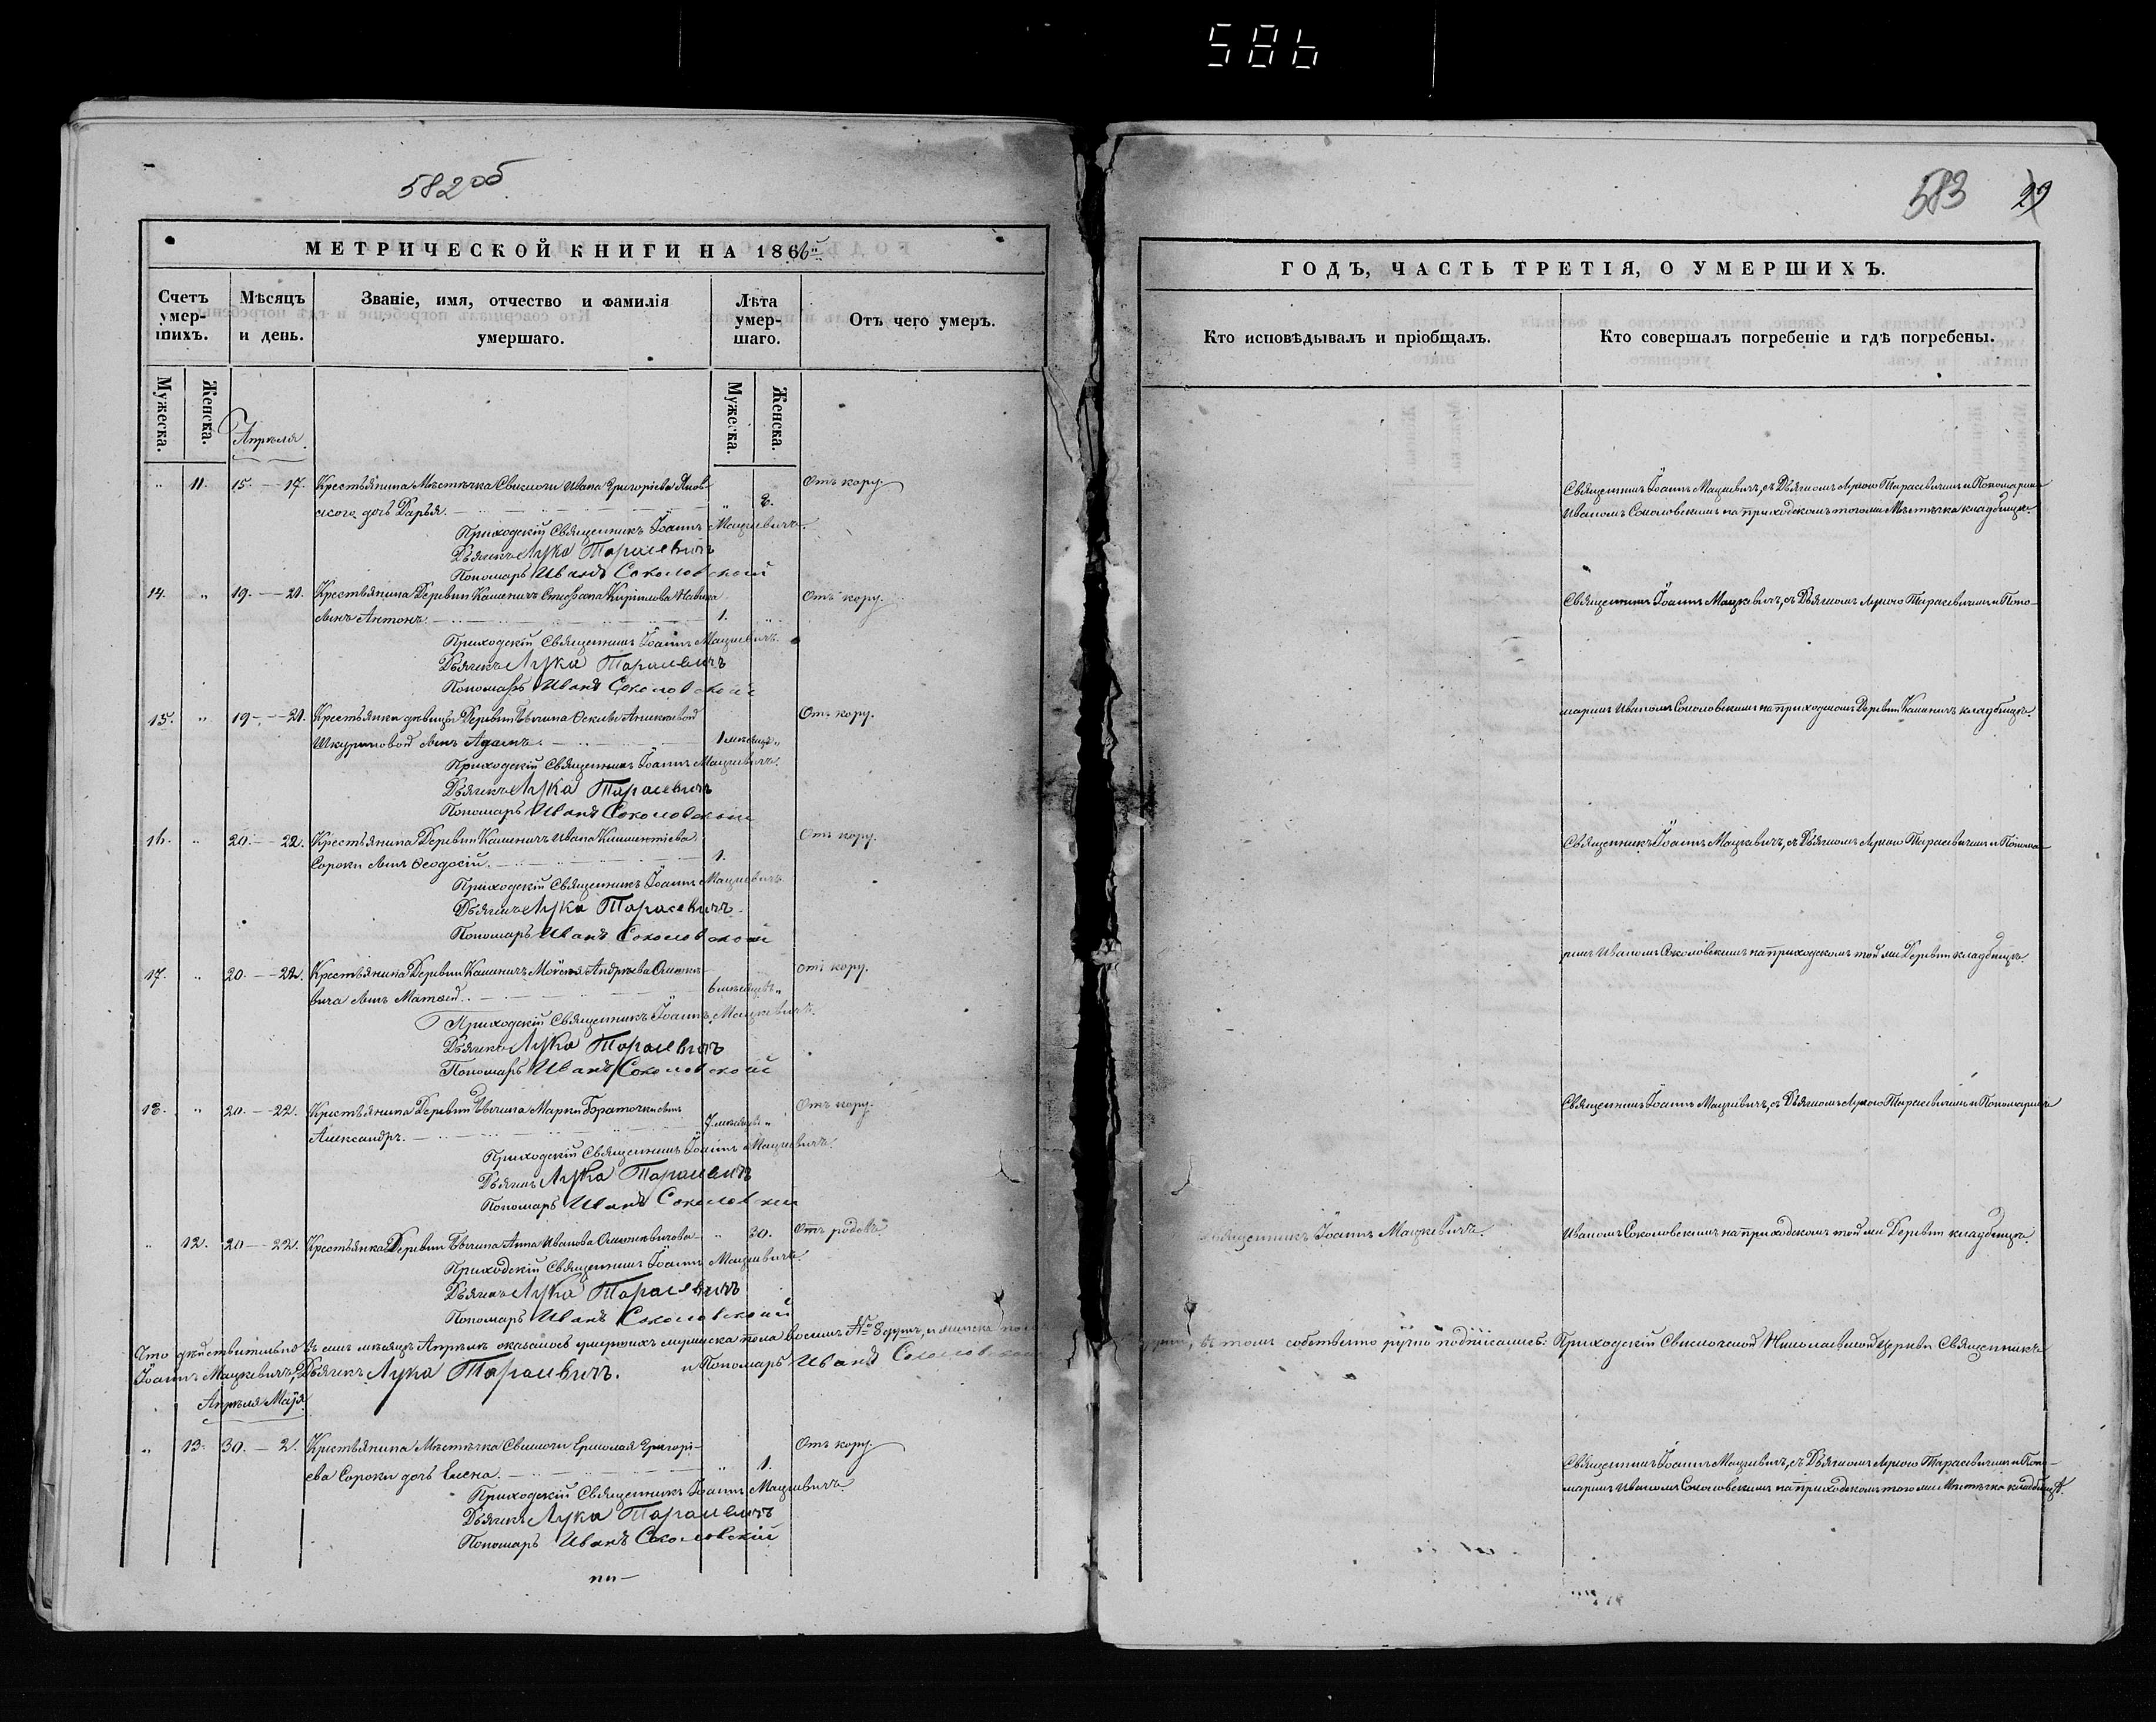 586
582 об
МЕТРИЧЕСКОЙ КНИГИ НА 1866й
Счетъ умер- шихъ.
Мѣсяцъ и день.
Званіе, имя, отчество и фамилія умершаго.
Лѣта умер- шаго.
Отъ чего умеръ.
Мужеска. Женска.
Мужеска. Женска.
Апрѣля
" 11. 15. — 17. Крестьянина Мѣстечка Свислочи Ивана Григоріева Янов- Отъ кору
скога дочь Дарья. " 2.
Приходскій Священникъ Іоаннъ Мацкевичъ.
Дьячекъ Лука Тарасевичъ
Пономарь Иванъ Соколовский
14. " 19. — 21. Крестьянина Деревни Каменичъ Стефана Кирилова Отъ кору.
сынъ Антонъ. 1. "
Приходскій Священникъ Іоаннъ Мацкевичъ.
Дьячекъ Лука Тарасевичъ
Пономарь Иванъ Соколовский
15. " 19. — 21. Крестьянки дѣвицы Деревни Ѳскилы Аникіевой Отъ кору.
Шкуриновой сынъ Адамъ. 1 мѣсяцъ "
Приходскій Священникъ Іоаннъ Мацкевичъ.
Дьячекъ Лука Тарасевичъ
Пономарь Иванъ Соколовский
16. " 20. — 22. Крестьянина Деревни Каменичъ Ивана Климентіева Отъ кору.
Сороки сынъ Ѳеодосій. 1.
Приходскій Священникъ Іоаннъ Мацкевичъ
Дьячекъ Лука Тарасевичъ
Пономарь Иванъ Соколовский
17. " 20. — 22. Крестьянина Деревни Каменичъ Моисея Андреева Отъ кору.
вича сынъ Матвей. 6 мѣсяцевъ "
Приходскій Священникъ Іоаннъ Мацкевичъ.
Дьячекъ Лука Тарасевичъ
Пономарь Иванъ Соколовский
18. " 20. — 22. Крестьянина Деревни Марки Браточки сынъ Отъ кору.
Александръ. 7 мѣсяцевъ "
Приходскій Священникъ Іоаннъ Мацкевичъ.
Дьячекъ Лука Тарасевичъ
Пономарь Иванъ Соколовский
" 12. 20 — 22. Крестьянка Деревни Анна Иванова " 30. Отъ родовъ
Приходскій Священникъ Іоаннъ Мацкевичъ.
Дьячекъ Лука Тарасевичъ
Пономарь Иванъ Соколовский
Что дѣйствительно въ семъ мѣсяцѣ Апрѣлѣ оказалось умершихъ мужеска пола восемь № 8 душъ, и женска
Іоаннъ Мацкевичъ, Дьячекъ Лука Тарасевичъ. и Пономарь Иванъ Соколовский
Апрѣля Маія
" 13. 30. — 2. Крестьянина Мѣстечка Свислочи Ермолая Григорі- Отъ кору
ева Сороки дочь Елена. " 1.
Приходскій Священникъ Іоаннъ Мацкевичъ.
Дьячекъ Лука Тарасевичъ
Пономарь Иванъ Соколовскій
583 29
ГОДЪ, ЧАСТЬ ТРЕТІЯ, О УМЕРШИХЪ.
Кто исповѣдывалъ и пріобщалъ.
Кто совершалъ погребеніе и гдѣ погребены.
Священникъ Іоаннъ Мацкевичъ, съ Дьячкомъ Лукою Тарасевичемъ и Пономаремъ
Иваномъ Соколовскимъ на приходскомъ тогоже Мѣстечка кладбищѣ.
Священникъ Іоаннъ Мацкевичъ, съ Дьячкомъ Лукою Тарасевичемъ и Поно-
маремъ Иваномъ Соколовскимъ на приходскомъ Деревни Каменичъ кладбищѣ.
Священникъ Іоаннъ Мацкевичъ, съ Дьячкомъ Лукою Тарасевичемъ и Понома-
ремъ Иваномъ Соколовскимъ на приходскомъ той же Деревни кладбищѣ.
Священникъ Іоаннъ Мацкевичъ, съ Дьячкомъ Лукою Тарасевичемъ и Пономаремъ
Священникъ Іоаннъ Мацкевичъ. Иваномъ Соколовскимъ на приходскомъ той же Деревни кладбищѣ.
въ томъ собственно ручно подписались: Приходскій Свислочской Николаевской Церкви Священникъ
Священникъ Іоаннъ Мацкевичъ, съ Дьячкомъ Лукою Тарасевичемъ и Поно-
маремъ Иваномъ Соколовскимъ на приходскомъ тогоже Мѣстечка кладбищѣ.